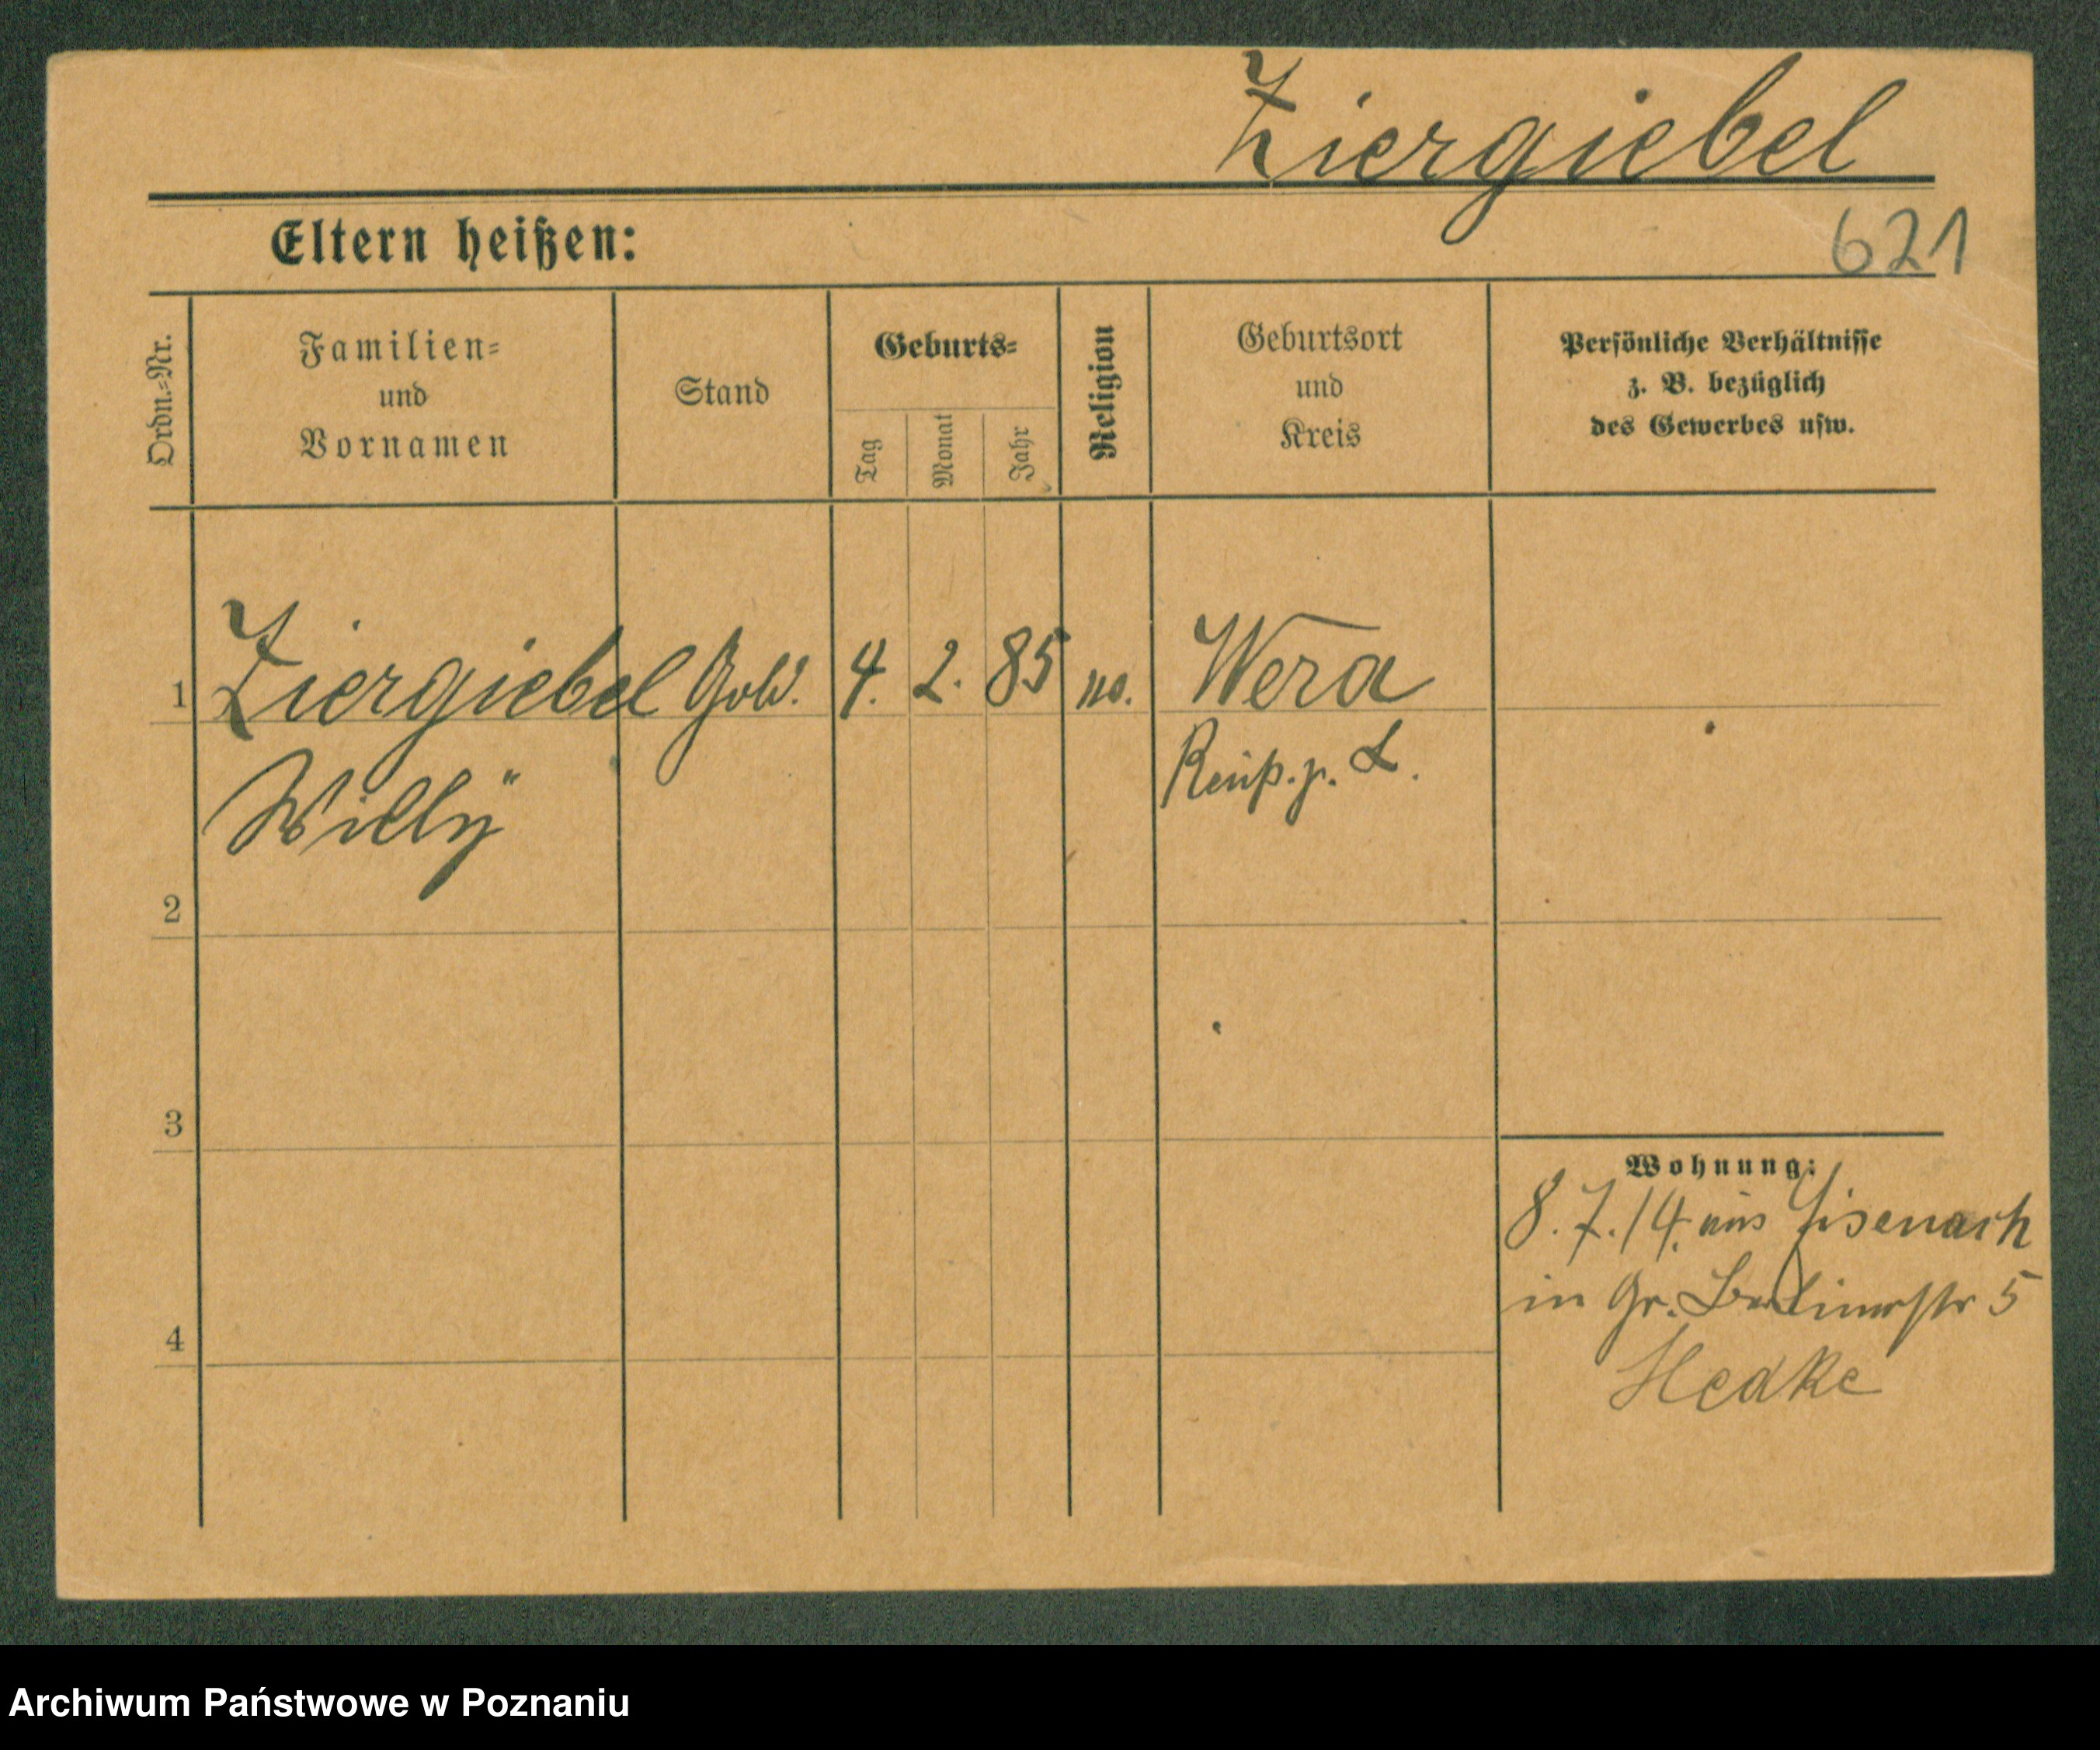 Ziergiebel
Eltern heißen:
621
Ordn.-Nr.
Familien-
und
Vornamen
Stand
Geburts-
Tag
Monat
Jahr
Religion
Geburtsort
und
Kreis
Persönliche Verhältnisse
z. B. bezüglich
des Gewerbes usw.
1 Ziergiebel 4. 2. 85 Wera
Willy
Reuß. j. L.
2
3
4
Wohnung:
8.7.14. aus Eisenach
in Gr. Berlinerstr 5
Hedke
Archiwum Państwowe w Poznaniu